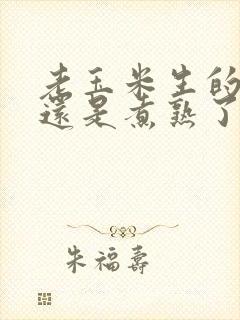 老玉米生的
還是煮熟了
朱福壽